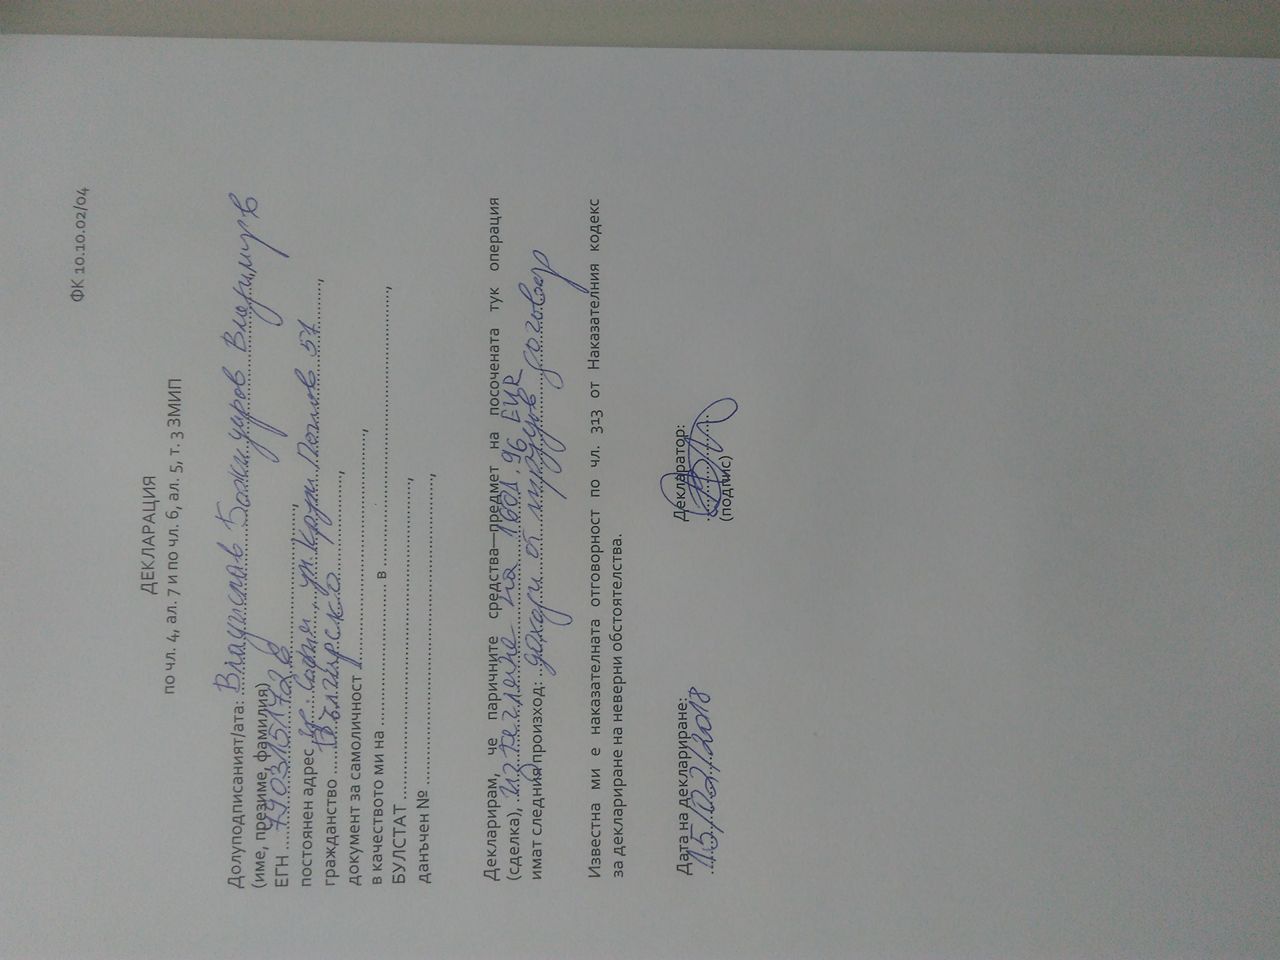 ФК 10.10.02/04
ДЕКЛАРАЦИЯ
по чл. 4, ал. 7 и по чл. 6, ал. 5, т. 3 ЗМИП
Долуподписаният/ата: Владислав Божидаров Владимиров
(име, презиме, фамилия)
ЕГН 7903151728,
постоянен адрес гр. София, ул. 57,
гражданство Българско,
документ за самоличност ,
в качеството ми на в ,
БУЛСТАТ ,
данъчен № ,
Декларирам, че паричните средства—предмет на посочената тук операция
(сделка), изтеглене на 96 EUR
имат следния произход: от трудов договор
Известна ми е наказателната отговорност по чл. 313 от Наказателния кодекс
за деклариране на неверни обстоятелства.
Дата на деклариране: Декларатор:
15/02/2018
(подпис)